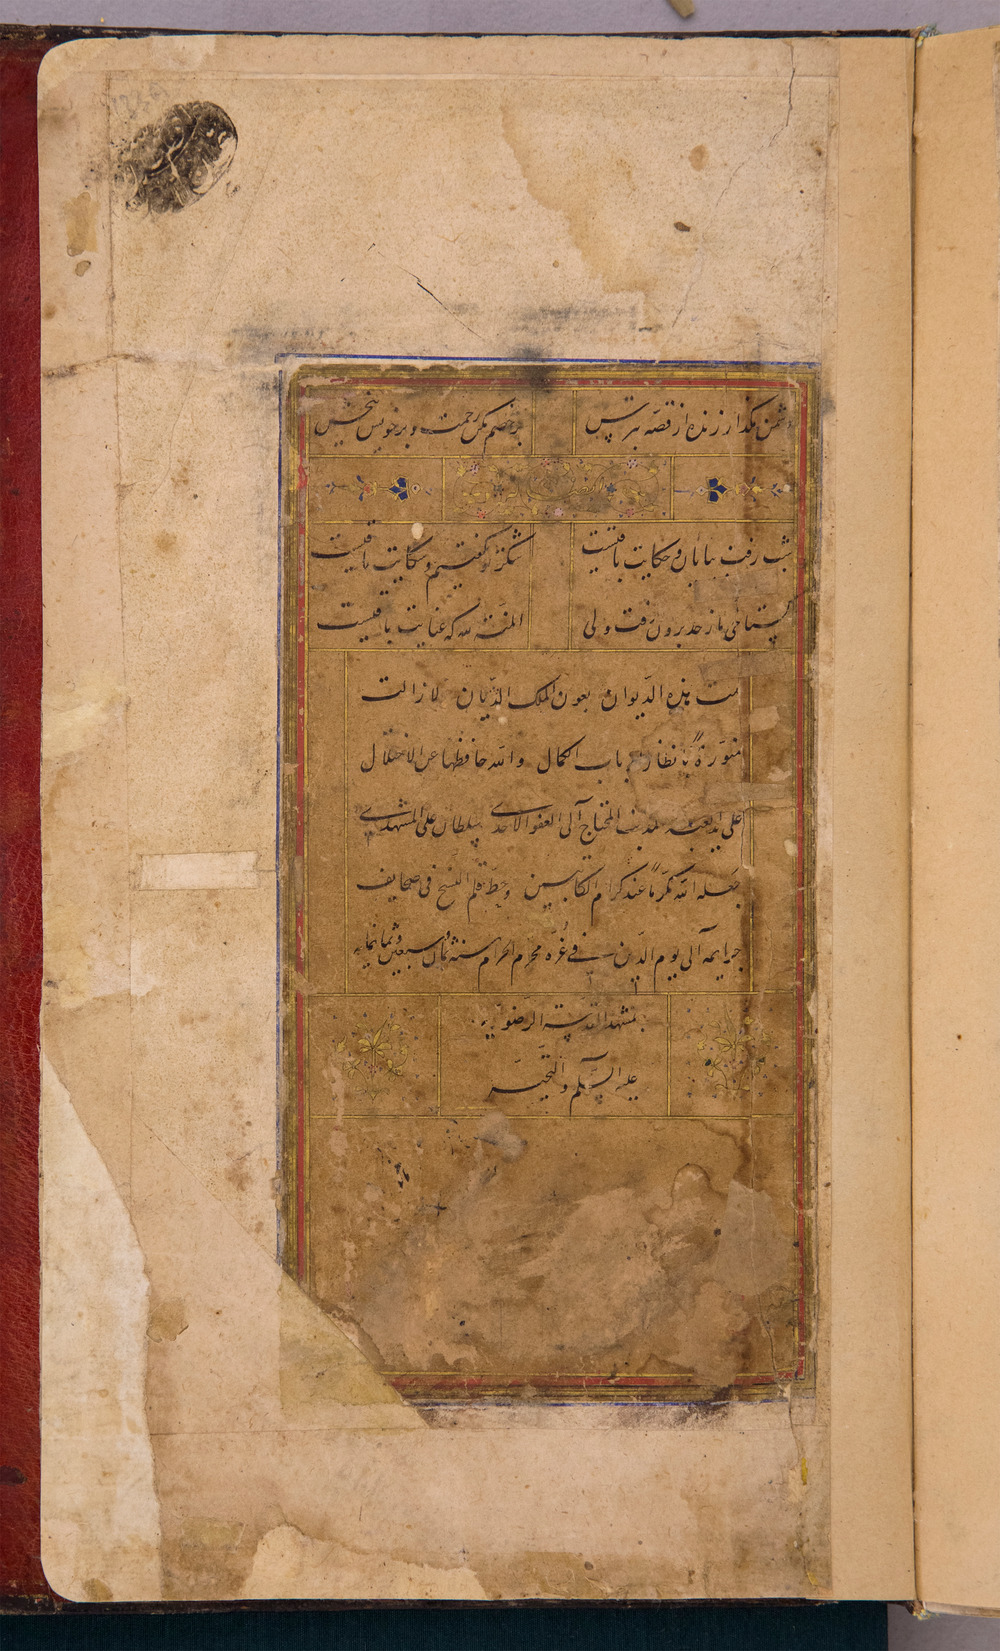 دشمن مگذار زنده از قصه مترس
بر خصم مکن رحمت و بر خویش ببخش
ایضا له
شب رفت بپایان و حکایت باقیست
شکر تو نگفتیم و شکایت باقیست
گستاخی ما ز حد برون رفت ولی
المنة لله که عنایت باقیست
تمت هذه الدیوان بعون الملک الدیان لا زالت
منورة بانظار ارباب الکمال والله حافظها عن الاختلال
علی ید العبد المذنب المحتاج الی العفو الاحدی سلطان علی المشهدی
جعله الله مکرما عند کرام الکاتبین وخط قلم النسخ فی صحایف
جرایمه الی یوم الدین فی غره محرم الحرام سنه ثمان وسبعین وثمانمایه
بمشهد المقدسه الرضویه
علیه السلام والتحیه